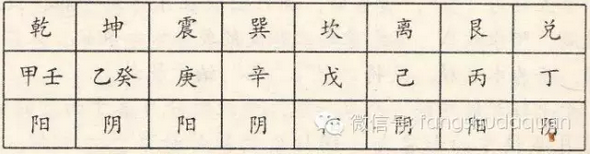 乾 坤 震 巽 坎 离 艮 兑
甲壬 乙癸 庚 辛 戊 己 丙 丁
阳 阴 阳 阴 阴 阳
微信号:fangshudaquan